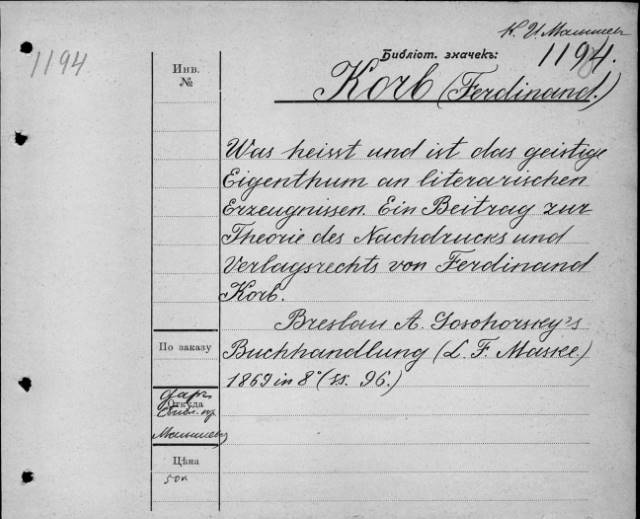 К. И. Малышев
1194
Инв.
№
Библіот. значекъ:
1194.
Korb (Ferdinand.)
Was heisst und ist das geistige
Eigenthum an literarischen
Erzeugnissen. Ein Beitrag zur
Theorie des Nachdrucks und
Verlagsrechts von Ferdinand
Korb.
Breslau A. Gosohorsky's
По заказу
Buchhandlung (L. F. Maske.)
1869 in 8° (ss. 96.)
Откуда
даръ
Малышева
Цѣна
50к